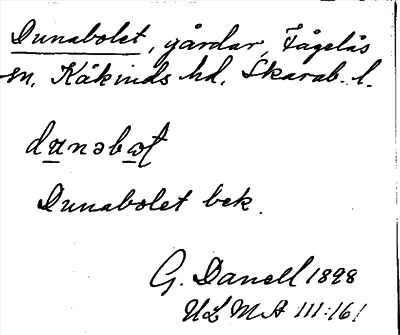 Dunabolet, gårdar, Fågelås
sn, Kåkinds hd, Skarab. l.
Dunabolet bek.
G. Danell 1898
ULMA 111:161